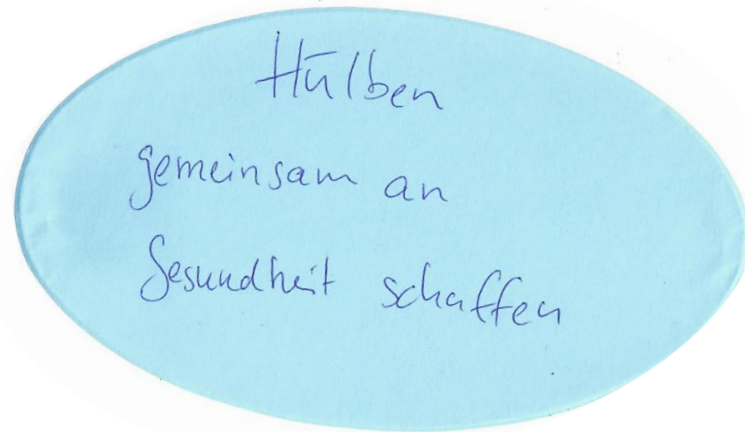 Hülben
gemeinsam an
Gesundheit schaffen